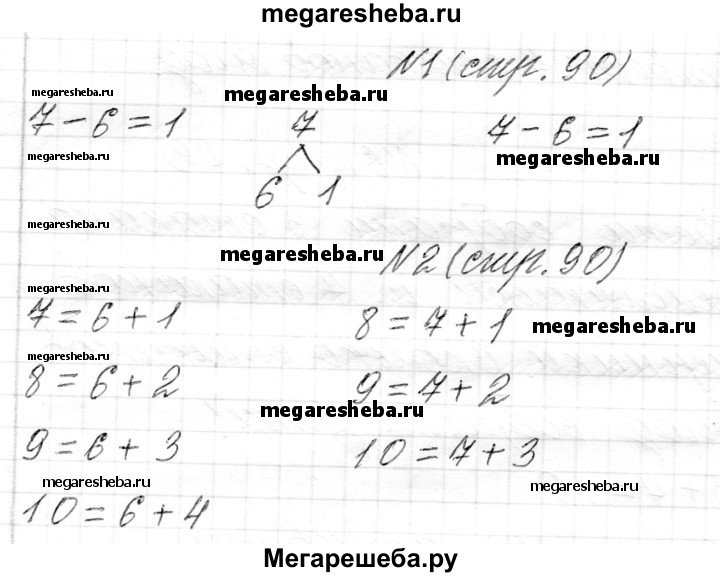 megaresheba.ru
№1 (стр. 90)
megaresheba.ru
megaresheba.ru
7 - 6 = 1
7
7 - 6 = 1
megaresheba.ru
megaresheba.ru
6 1
megaresheba.ru
megaresheba.ru
№2 (стр. 90)
megaresheba.ru
7 = 6 + 1
8 = 7 + 1
megaresheba.ru
megaresheba.ru
8 = 6 + 2
9 = 7 + 2
megaresheba.ru
9 = 6 + 3
10 = 7 + 3
megaresheba.ru
megaresheba.ru
10 = 6 + 4
Мегарешеба.ру